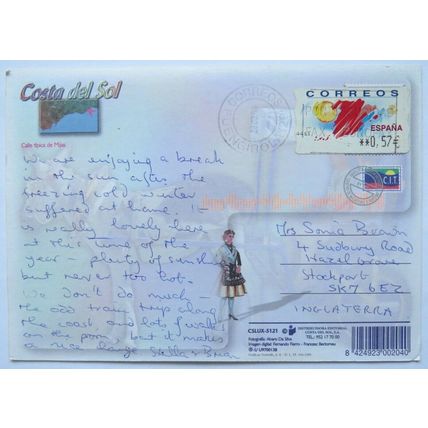 Costa del Sol
Calle típica de Mijas
We are enjoying a break
in the sun after the
freezing cold winter
suffered at home. It
is really lovely here
at this time of the
year - plenty of sunshine
but never too hot.
We don't do much -
the odd train trip along
the coast and lots of walks
on the prom, but it makes
a nice change
Stella & Brian
CORREOS
ESPAÑA
**0,57€
C.I.T.
Mrs Sonia Brown
4 Sudbury Road
Hazel Grove
Stockport
SK7 6EZ
INGLATERRA
CSLUX-5121
DISTRIBUIDORA EDITORIAL
COSTA DEL SOL, S.L.
TEL.: 952 17 70 00
Imagen digital: Fernando Fierro - Francesc Bertomeu
8 424923 002040